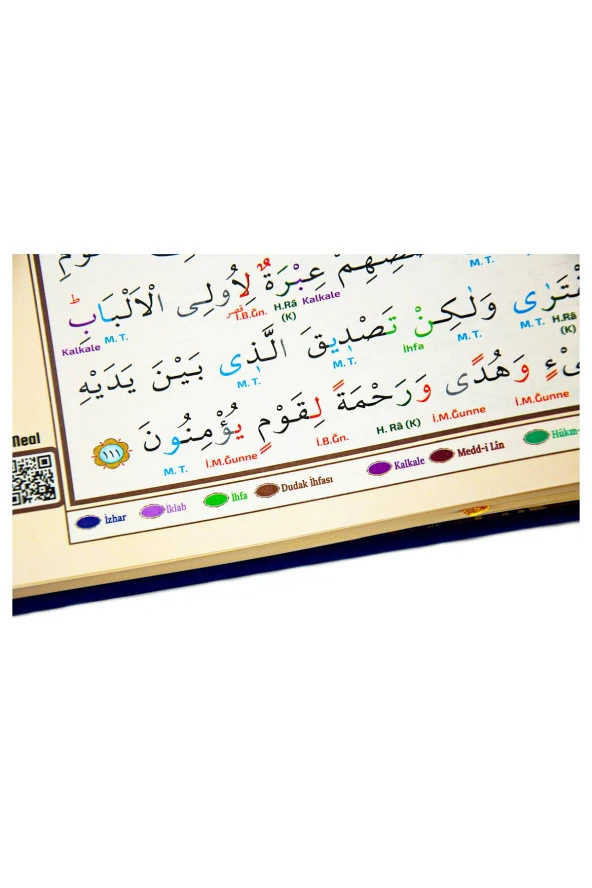 M. T.
قَصَصِهِمْ عِبْرَةٌ لِاُولِى الْاَلْبَابِ
ط
قصر
Kalkale M. T. İ.B.Ğn. H.Râ (K) Kalkale
يَدَيْهِ بَيْنَ الَّذٖى تَصْدٖيقَ وَلٰكِنْ
M. T. M. T. İhfa M. T. M. T. H.Râ (K)
وَهُدًى وَرَحْمَةً لِقَوْمٍ يُؤْمِنُونَ ١١١
M. T. İ.M.Ğunne İ.B.Ğn. H. Râ (K) İ.M.Ğunne İ.M.Ğunne
İzhar İklab İhfa Dudak İhfası Kalkale Medd-i Lîn